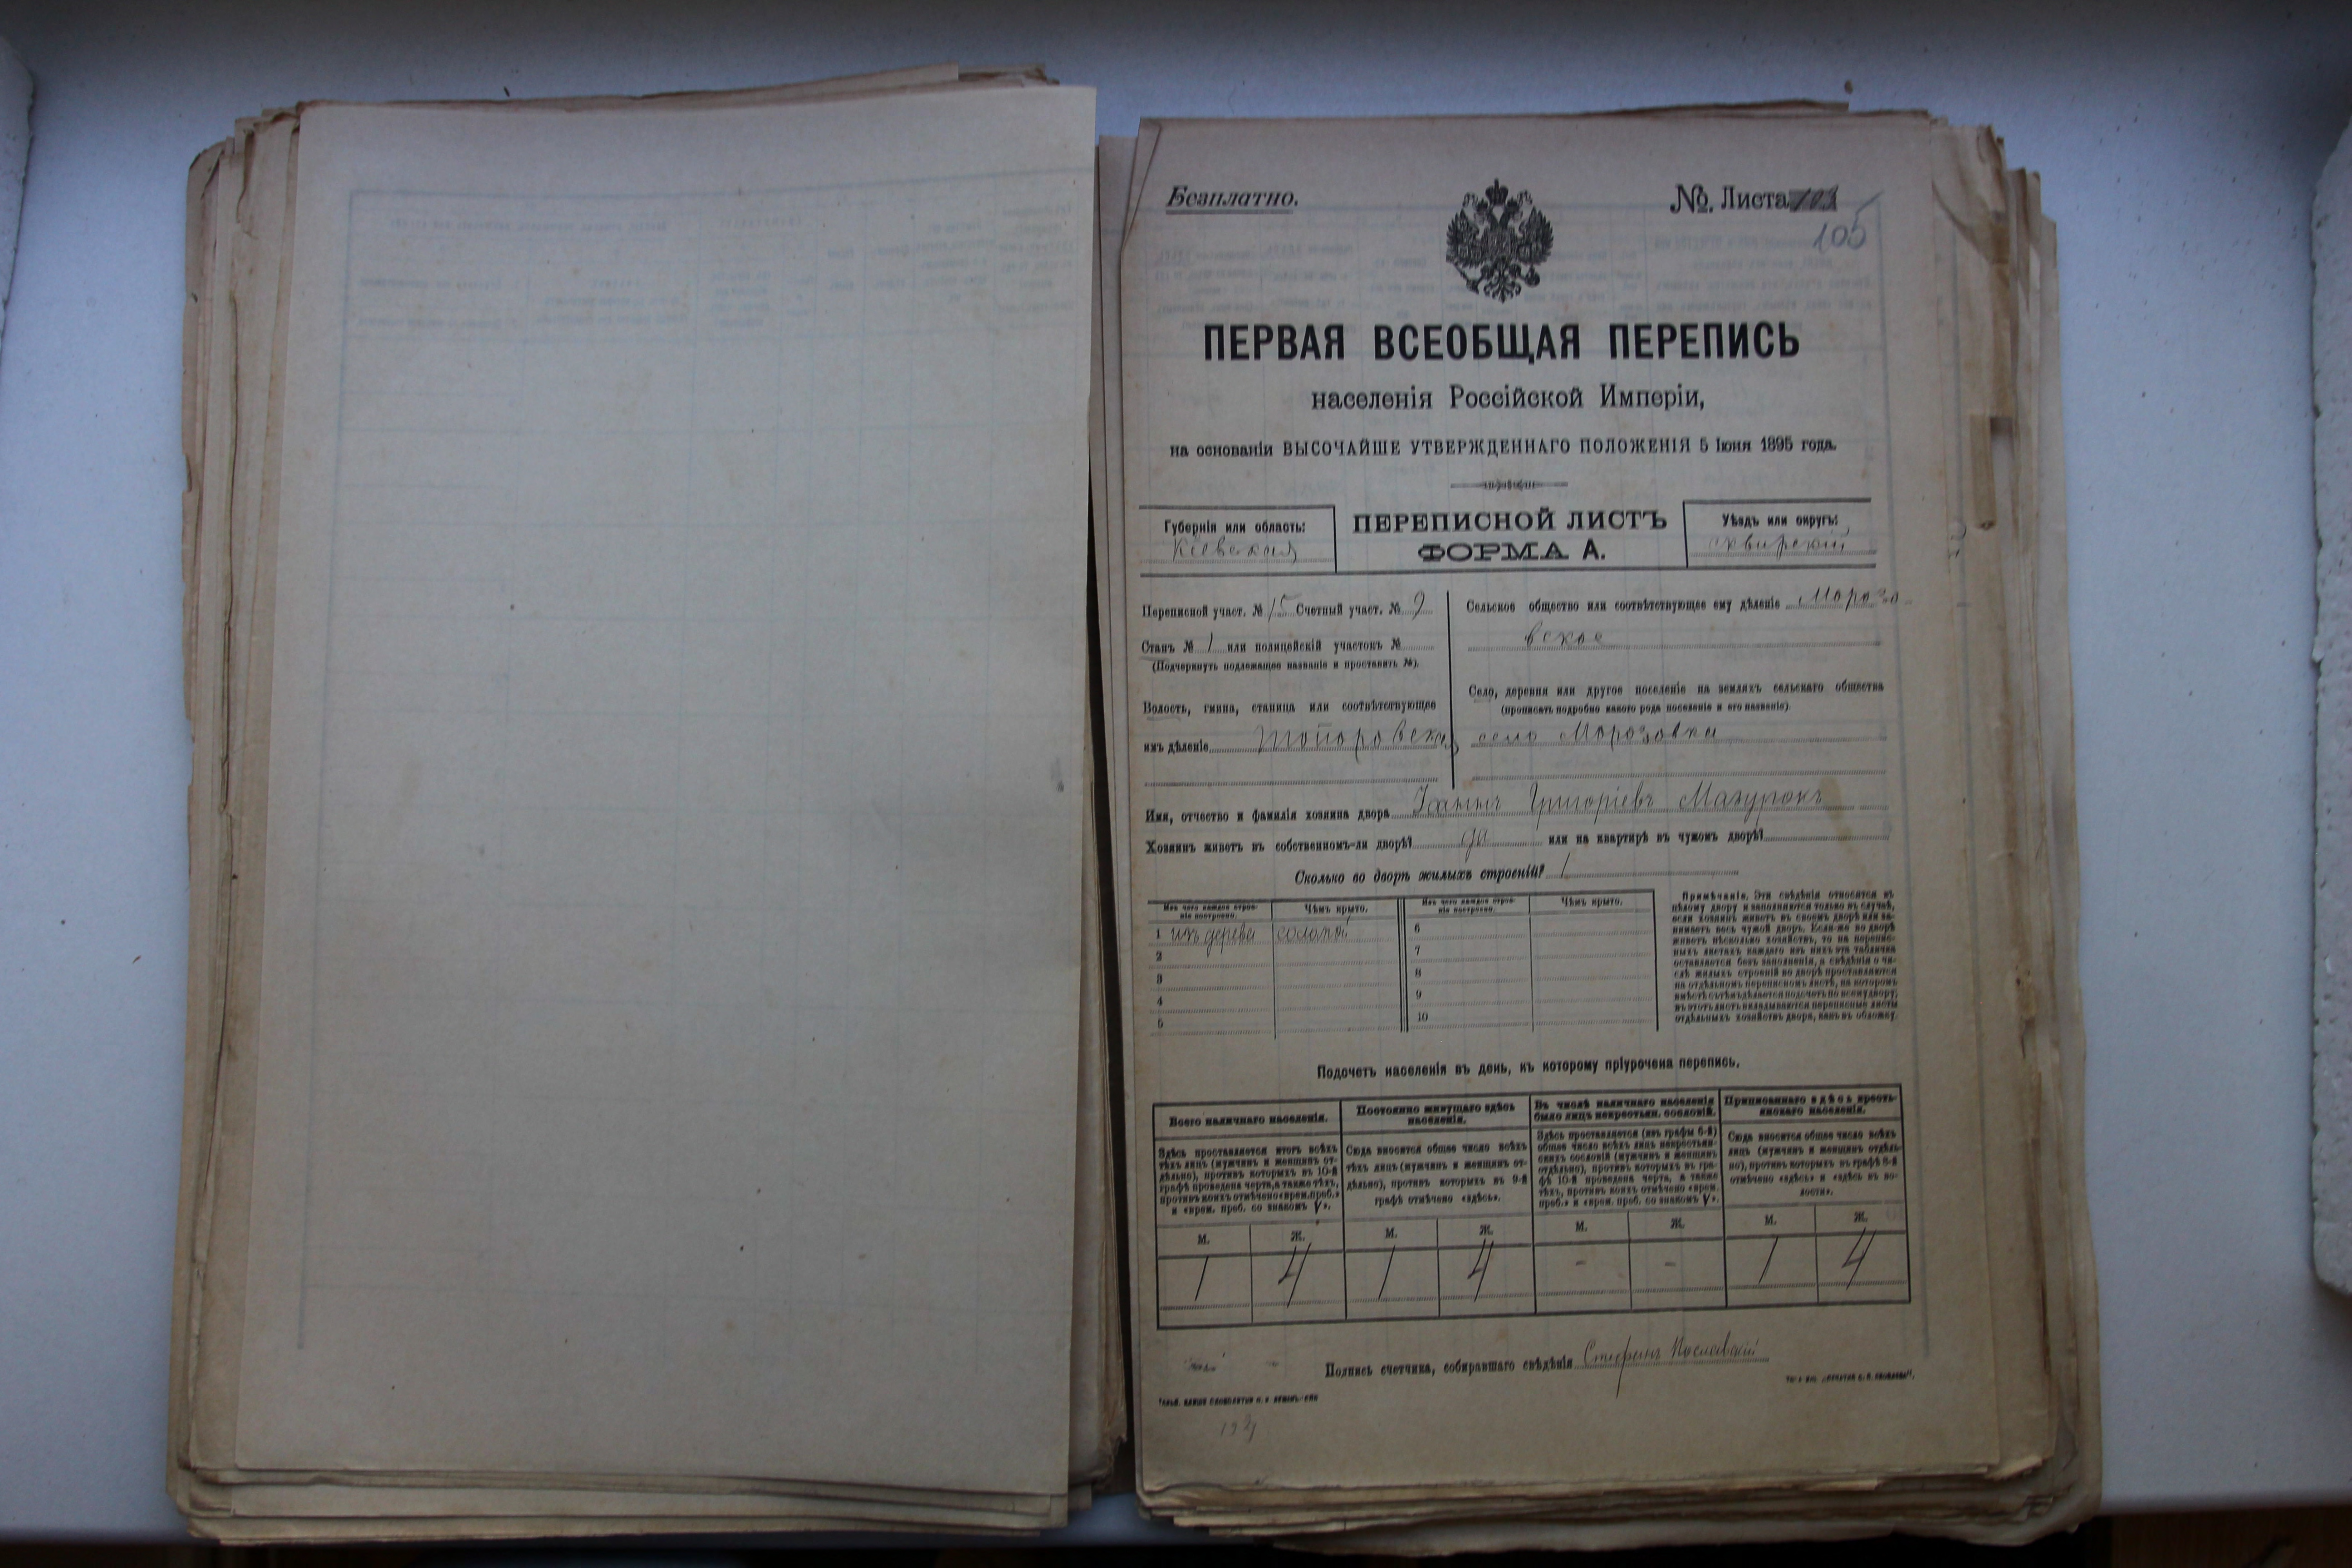 Безплатно.
№. Листа
105
ПЕРВАЯ ВСЕОБЩАЯ ПЕРЕПИСЬ
населенія Россійской Имперіи,
на основаніи ВЫСОЧАЙШЕ УТВЕРЖДЕННАГО ПОЛОЖЕНІЯ 5 Іюня 1895 года.
Губернія или область:
Кіевская
ПЕРЕПИСНОЙ ЛИСТЪ
ФОРМА А.
Уѣздъ или округъ:
сквирскій
Переписной участ. № 15 Счетный участ. № 9
Станъ № 1 или полицейскій участокъ №
(Подчеркнуть подлежащее названіе и проставить №).
Волость, гмина, станица или соотвѣтствующее
имъ дѣленіе Топоровская
Сельское общество или соотвѣтствующее ему дѣленіе Морозо
вское
Село, деревня или другое поселеніе на земляхъ сельскаго общества
(прописать подробно какого рода поселеніе и его названіе)
село Морозовка
Имя, отчество и фамилія хозяина двора Іоаннъ Григоріевъ Мазурокъ
Хозяинъ живетъ въ собственномъ-ли дворѣ? да или на квартирѣ въ чужомъ дворѣ?
Сколько во дворѣ жилыхъ строеній? 1
Изъ чего каждое строе-
ніе построено.
Чѣмъ крыто.
Изъ чего каждое строе-
ніе построено.
Чѣмъ крыто.
1 изъ дерева соломой
2
3
4
5
6
7
8
9
10
Примѣчаніе. Эти свѣдѣнія относятся къ
цѣлому двору и заполняются только въ случаѣ,
если хозяинъ живетъ въ своемъ дворѣ или за-
нимаетъ весь чужой дворъ. Если-же во дворѣ
живетъ нѣсколько хозяйствъ, то на перепис-
ныхъ листахъ каждаго изъ нихъ эта табличка
оставляется безъ заполненія, а свѣдѣнія о чи-
слѣ жилыхъ строеній во дворѣ проставляются
на отдѣльномъ переписномъ листѣ, на которомъ
вмѣстѣ съ тѣмъ дѣлается подсчетъ по всему двору;
въ этотъ листъ вкладываются переписные листы
отдѣльныхъ хозяйствъ двора, какъ въ обложку.
Подсчетъ населенія въ день, къ которому пріурочена перепись.
Всего наличнаго населенія.
Здѣсь проставляется итогъ всѣхъ
тѣхъ лицъ (мужчинъ и женщинъ от-
дѣльно), противъ которыхъ въ 10-й
графѣ проведена черта, а также тѣхъ,
противъ коихъ отмѣчено «врем. преб.»
и «врем. преб. со знакомъ V».
Постоянно живущаго здѣсь
населенія.
Сюда вносится общее число всѣхъ
тѣхъ лицъ (мужчинъ и женщинъ от-
дѣльно), противъ которыхъ въ 9-й
графѣ отмѣчено «здѣсь».
Въ числѣ наличнаго населенія
было лицъ некрестьян. сословій.
Здѣсь проставляется (изъ графы 6-й)
общее число всѣхъ лицъ некрестьян-
скихъ сословій (мужчинъ и женщинъ
отдѣльно), противъ которыхъ въ гра-
фѣ 10-й проведена черта, а также
тѣхъ, противъ коихъ отмѣчено «врем.
преб.» и «врем. преб. со знакомъ V».
Приписаннаго здѣсь кресть-
янскаго населенія.
Сюда вносится общее число всѣхъ
лицъ (мужчинъ и женщинъ отдѣль-
но), противъ которыхъ въ графѣ 8-й
отмѣчено «здѣсь» и «здѣсь въ во-
лости».
М. Ж. М. Ж. М. Ж. М. Ж.
1 4 1 4 - - 1 4
Подпись счетчика, собиравшаго свѣдѣнія Стефанъ